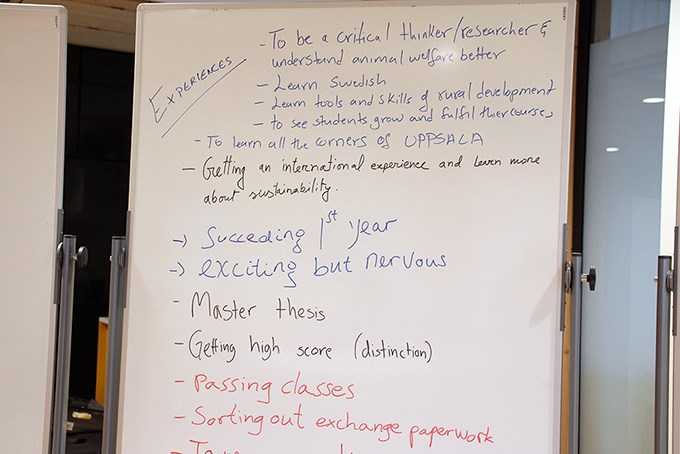 EXPERIENCES
- To be a critical thinker/researcher &
understand animal welfare better
- Learn Swedish
- Learn tools and skills of rural development
- to see students grow and fulfil thier courses
- To learn all the corners of UPPSALA
- Getting an international experience and learn more
about sustainability.
-> Succeding 1st year
-> exciting but nervous
- Master thesis
- Getting high score (distinction)
- Passing classes
- Sorting out exchange paperwork
- To